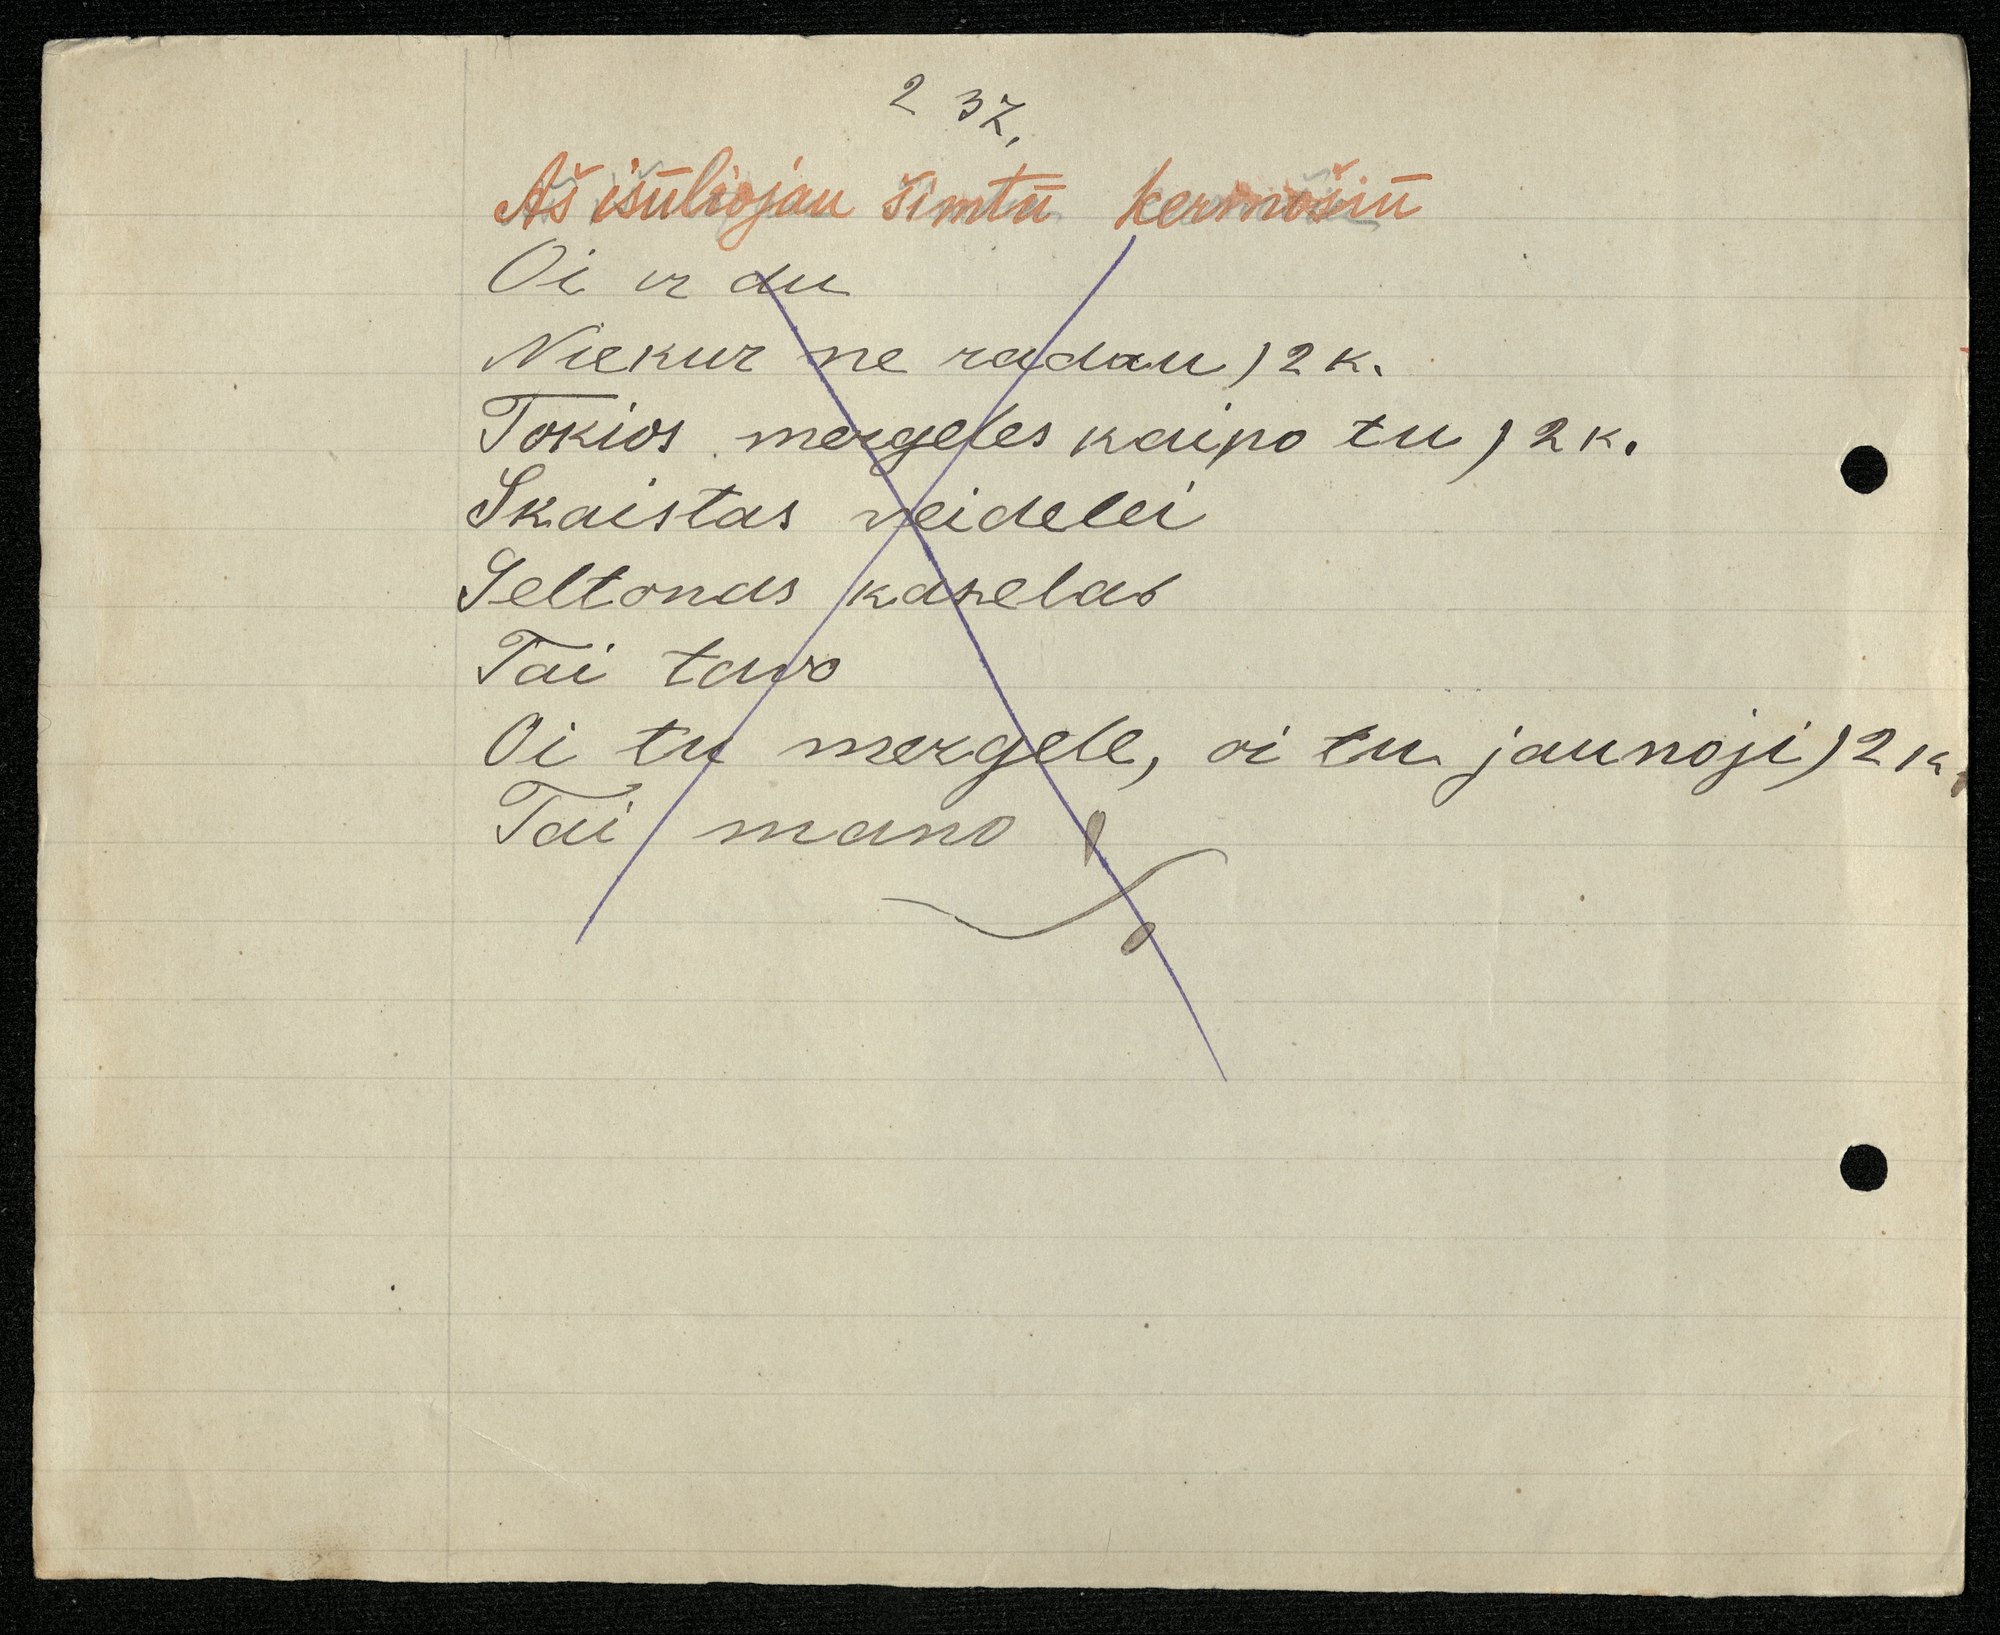 237.
Aš išūliojau šimtū kermošiū
Oi ir du
Niekur ne radau ) 2 k.
Tokios mergeles kaipo tu ) 2 k.
Skaistas veidelei
Geltonas kaselas
Tai tavo
Oi tu mergele, oi tu jaunoji ) 2 k.
Tai mano